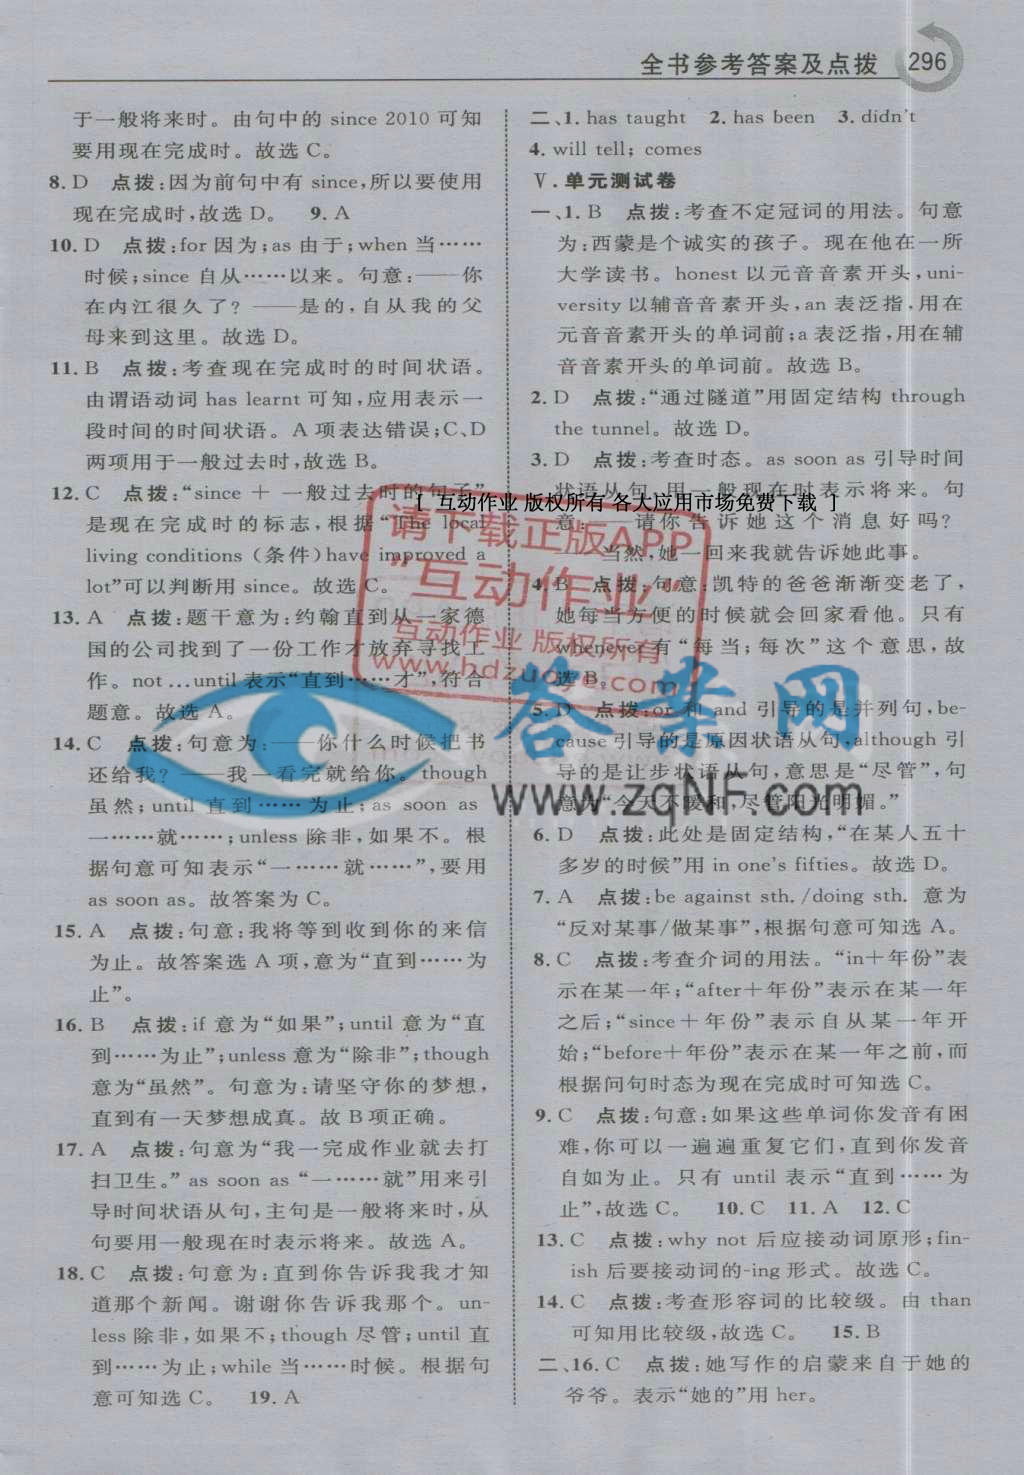 全书参考答案及点拨 296
于一般将来时。由句中的 since 2010 可知
要用现在完成时。故选 C。
8. D 点拨:因为前句中有 since,所以要使用
现在完成时,故选 D。 9. A
10. D 点拨:for 因为;as 由于;when 当……
时候;since 自从……以来。句意:——你
在内江很久了? ——是的,自从我的父
母来到这里。故选 D。
11. B 点拨:考查现在完成时的时间状语。
由谓语动词 has learnt 可知,应用表示一
段时间的时间状语。A 项表达错误;C、D
两项用于一般过去时,故选 B。
12. C 点拨:“since + 一般过去时的句子”
是现在完成时的标志,根据“The local
living conditions (条件) have improved a
lot”可以判断用 since。故选 C。
13. A 点拨:题干意为:约翰直到从一家德
国的公司找到了一份工作才放弃寻找工
作。not …until 表示“直到……才”,符合
题意。故选 A。
14. C 点拨:句意为:——你什么时候把书
还给我? ——我一看完就给你。though
虽然;until 直到……为止;as soon as
一……就……;unless 除非,如果不。根
据句意可知表示“一……就……”,要用
as soon as。故答案为 C。
15. A 点拨:句意:我将等到收到你的来信
为止。故答案选 A 项,意为“直到……为
止”。
16. B 点拨:if 意为“如果”;until 意为“直
到……为止”;unless 意为“除非”;though
意为“虽然”。句意为:请坚守你的梦想,
直到有一天梦想成真。故 B 项正确。
17. A 点拨:句意为“我一完成作业就去打
扫卫生。”as soon as “一……就”用来引
导时间状语从句,主句是一般将来时,从
句要用一般现在时表示将来。故选 A。
18. C 点拨:句意为:直到你告诉我我才知
道那个新闻。谢谢你告诉我那个。un-
less 除非,如果不;though 尽管;until 直
到……为止;while 当……时候。根据句
意可知选 C。 19. A
二、1. has taught 2. has been 3. didn't
4. will tell; comes
Ⅴ. 单元测试卷
一、1. B 点拨:考查不定冠词的用法。句意
为:西蒙是个诚实的孩子。现在他在一所
大学读书。honest 以元音音素开头,uni-
versity 以辅音音素开头,an 表泛指,用在
元音音素开头的单词前;a 表泛指,用在辅
音音素开头的单词前。故选 B。
2. D 点拨:“通过隧道”用固定结构 through
the tunnel。故选 D。
3. D 点拨:考查时态。as soon as 引导时间
状语从句,用一般现在时表示将来。句
意:——请你告诉她这个消息好吗?
——当然,她一回来我就告诉她此事。
4. B 点拨:句意:凯特的爸爸渐渐变老了,
她每当方便的时候就会回家看他。只有
whenever 有“每当;每次”这个意思,故
选 B。
5. D 点拨:or 和 and 引导的是并列句,be-
cause 引导的是原因状语从句,although 引
导的是让步状语从句,意思是“尽管”,句
意为“今天不暖和,尽管阳光明媚。”
6. D 点拨:此处是固定结构,“在某人五十
多岁的时候”用 in one's fifties。故选 D。
7. A 点拨:be against sth. /doing sth. 意为
“反对某事/做某事”,根据句意可知选 A。
8. C 点拨:考查介词的用法。“in+年份”表
示在某一年;“after+年份”表示在某一年
之后;“since+年份”表示自从某一年开
始;“before+年份”表示在某一年之前,而
根据问句时态为现在完成时可知选 C。
9. C 点拨:句意:如果这些单词你发音有困
难,你可以一遍遍重复它们,直到你发音
自如为止。只有 until 表示“直到……为
止”,故选 C。 10. C 11. A 12. C
13. C 点拨:why not 后应接动词原形;fin-
ish 后要接动词的-ing 形式。故选 C。
14. C 点拨:考查形容词的比较级。由 than
可知用比较级,故选 C。 15. B
二、16. C 点拨:她写作的启蒙来自于她的
爷爷。表示“她的”用 her。
[ 互动作业 版权所有 各大应用市场免费下载 ]
请下载正版APP
“互动作业”
互动作业 版权所有
www.hdzuoye.com
答案网
www.zqNF.com